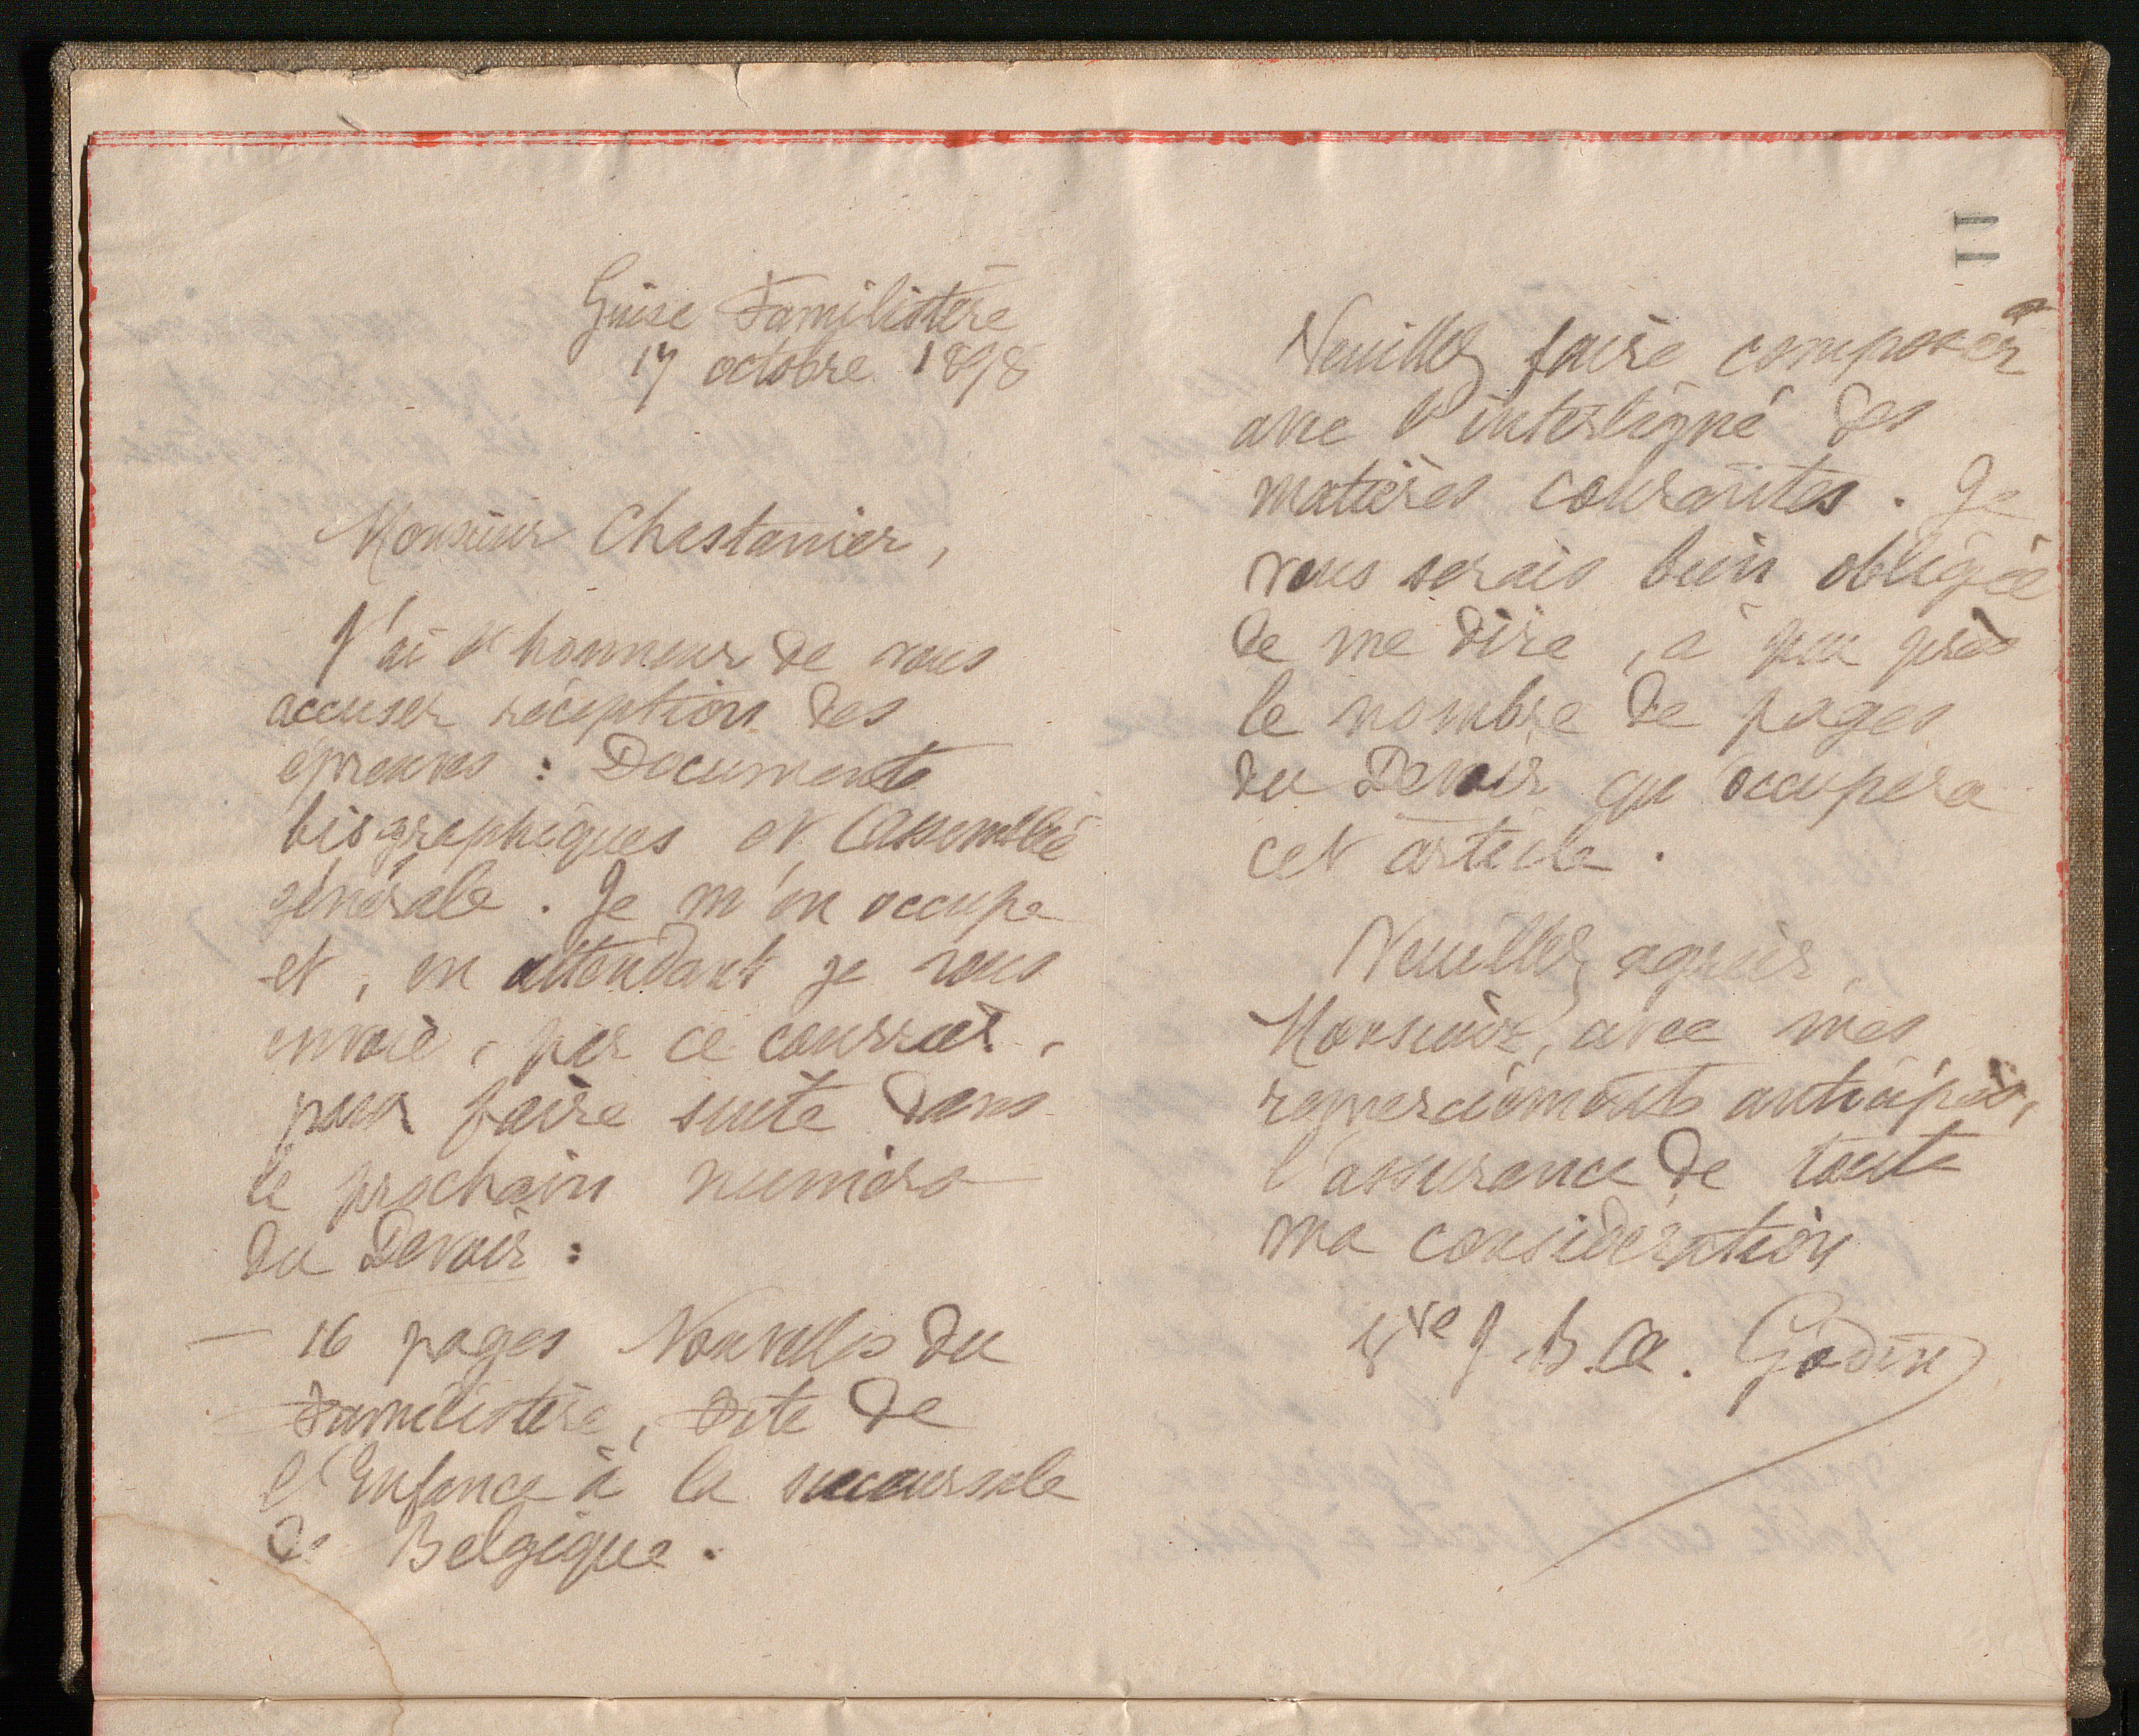 Guise Familistère
17 octobre 1898
Monsieur Chastanier,
J'ai l'honneur de vous
accuser réception des
épreuves : Documents
biographiques et Assemblée
générale. Je m'en occupe
et, en attendant je vous
envoie, par ce courrier,
pour faire suite dans
le prochain numéro
du Devoir :
— 16 pages Nouvelles du
Familistère, fête de
l'Enfance à la succursale
de Belgique.
11
Veuillez faire composer
avec l'interligne des
matières courantes. Je
vous serais bien obligée
de me dire, à peu près
le nombre de pages
du Devoir qu'occupera
cet article.
Veuillez agréer,
Monsieur, avec mes
remerciements anticipés,
l'assurance de toute
ma considération
Vve J. B. A. Godin